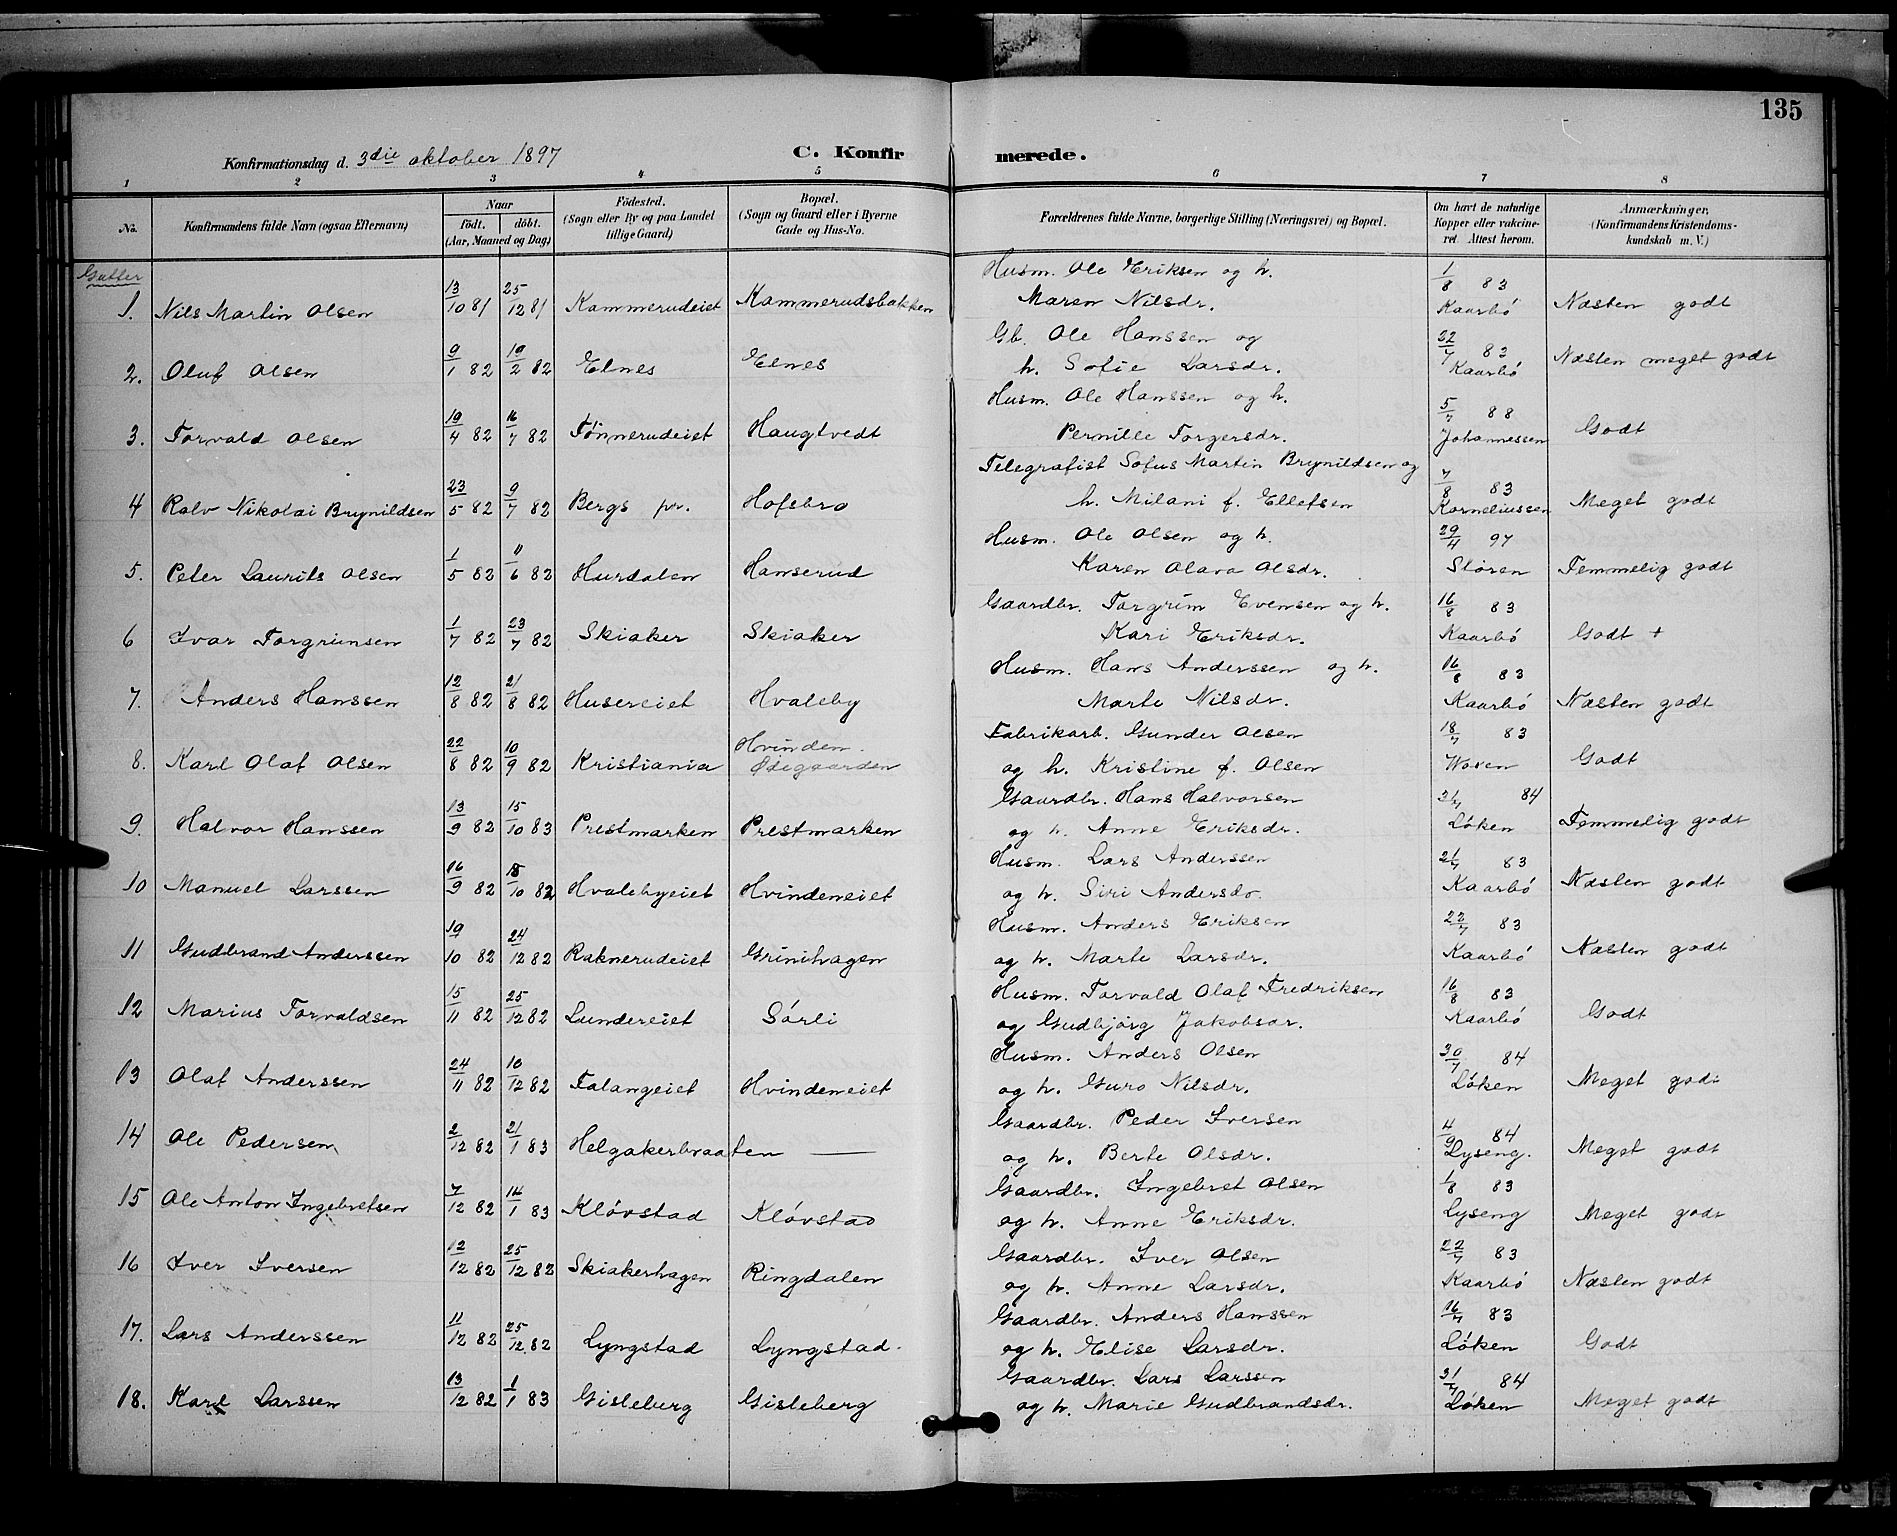 135
Konfirmationsdag d. 3die oktober 1897 C. Konfirmerede.
1 2 3 4 5 6 7 8
No. Konfirmandens fulde Navn (ogsaa Efternavn) Naar født. døbt. (Aar, Maaned og Dag) Fødested. (Sogn eller By og paa Landet tillige Gaard) Bopæl. (Sogn og Gaard eller i Byerne Gade og Hus-No. Forældrenes fulde Navne, borgerlige Stilling (Næringsvei) og Bopæl. Om havt de naturlige Kopper eller vakcineret. Attest herom. Anmærkninger. (Konfirmandens Kristendomskundskab m. V.)
Gutter
1. Nils Martin Olsen 13/10 81 25/12 81 Kammerudeiet Kammerudsbakken Husm. Ole Eriksen og h. Maren Nilsdr. 1/8 83 Kaarbø Næsten godt
2. Oluf Olsen 9/1 82 19/2 82 Elnes Elnes Gb. Ole Hanssen og h. Sofie Larsdr. 22/7 83 Kaarbø Næsten meget godt
3. Torvald Olsen 19/4 82 16/7 82 Tønnerudeiet Haugtvedt Husm. Ole Hanssen og h. Pernille Torgersdr. 5/7 88 Johannessen Godt
4 Ralv Nikolai Brynildsen 23/5 82 9/7 82 Bergs pr. Hofsbro Telegrafist Sofus Martin Brynildsen og h. Milani f. Ellefsen 7/8 83 Korneliussen Meget godt
5. Peter Laurits Olsen 1/5 82 11/6 82 Hurdalen Hanserud Husm. Ole Olsen og h. Karen Olava Olsdr. 29/4 97 Støren Temmelig godt
6 Ivar Torgrimsen 1/7 82 23/7 82 Skiaker Skiaker Gaardbr. Torgrim Evensen og h. Kari Eriksdr. 16/8 83 Kaarbø Godt +
7. Anders Hanssen 12/8 82 21/8 82 Husereiet Hvaleby Husm. Hans Anderssen og h. Marte Nilsdr. 16/8 83 Kaarbø Næsten godt
8. Karl Olaf Olsen 22/8 82 10/9 82 Kristiania Hvinden. Ødegaarden Fabrikarb. Gunder Olsen og h. Kristine f. Olsen 18/7 83 Godt
9. Halvor Hanssen 13/9 82 15/10 83 Prestmarken Prestmarken Gaardbr. Hans Halvorsen og h. Anne Eriksdr. 31/7 84 Løken Temmelig godt
10 Manuel Larssen 16/9 82 15/10 82 Hvalebyeiet Hvindeneiet Husm. Lars Anderssen og h. Siri Andersdr. 21/7 83 Kaarbø Næsten godt
11 Gudbrand Anderssen 19/10 82 24/12 82 Raknerudeiet Grinihagen Husm. Anders Eriksen og h. Marte Larsdr. 22/7 83 Kaarbø Næsten godt
12 Marius Torvaldsen 15/11 82 25/12 82 Lundereiet Sørli Husm. Torvald Olaf Fredriksen og Gudbjørg Jakobsdr. 16/8 83 Kaarbø Godt
13 Olaf Anderssen 24/11 82 10/12 82 Falangeiet Hvindeneiet Husm. Anders Olsen og h. Guro Nilsdr. 30/7 84 Løken Meget godt
14 Ole Pedersen 2/12 82 21/1 83 Helgakerbraaten — Gaardbr. Peder Iversen og h. Berte Olsdr. 4/9 84 Lyseng. Meget godt
15 Ole Anton Ingebretsen 7/12 82 14/1 83 Kløvstad Kløvstad Gaardbr. Ingebret Olsen og h. Anne Eriksdr. 1/8 83 Lyseng Meget godt
16 Iver Iversen 12/12 82 25/12 82 Skiakerhagen Ringdalen Gaardbr. Iver Olsen og h. Anne Larsdr. 22/7 83 Kaarbø Næsten godt
17. Lars Anderssen 11/12 82 25/12 82 Lyngstad Lyngstad. Gaardbr. Anders Hanssen og h. Elise Larsdr. 16/7 83 Løken Godt
18. Karl Larssen 13/12 82 1/1 83 Gisleberg Gisleberg Gaardbr. Lars Larssen og h. Marie Gudbrandsdr. 31/7 84 Løken Meget godt